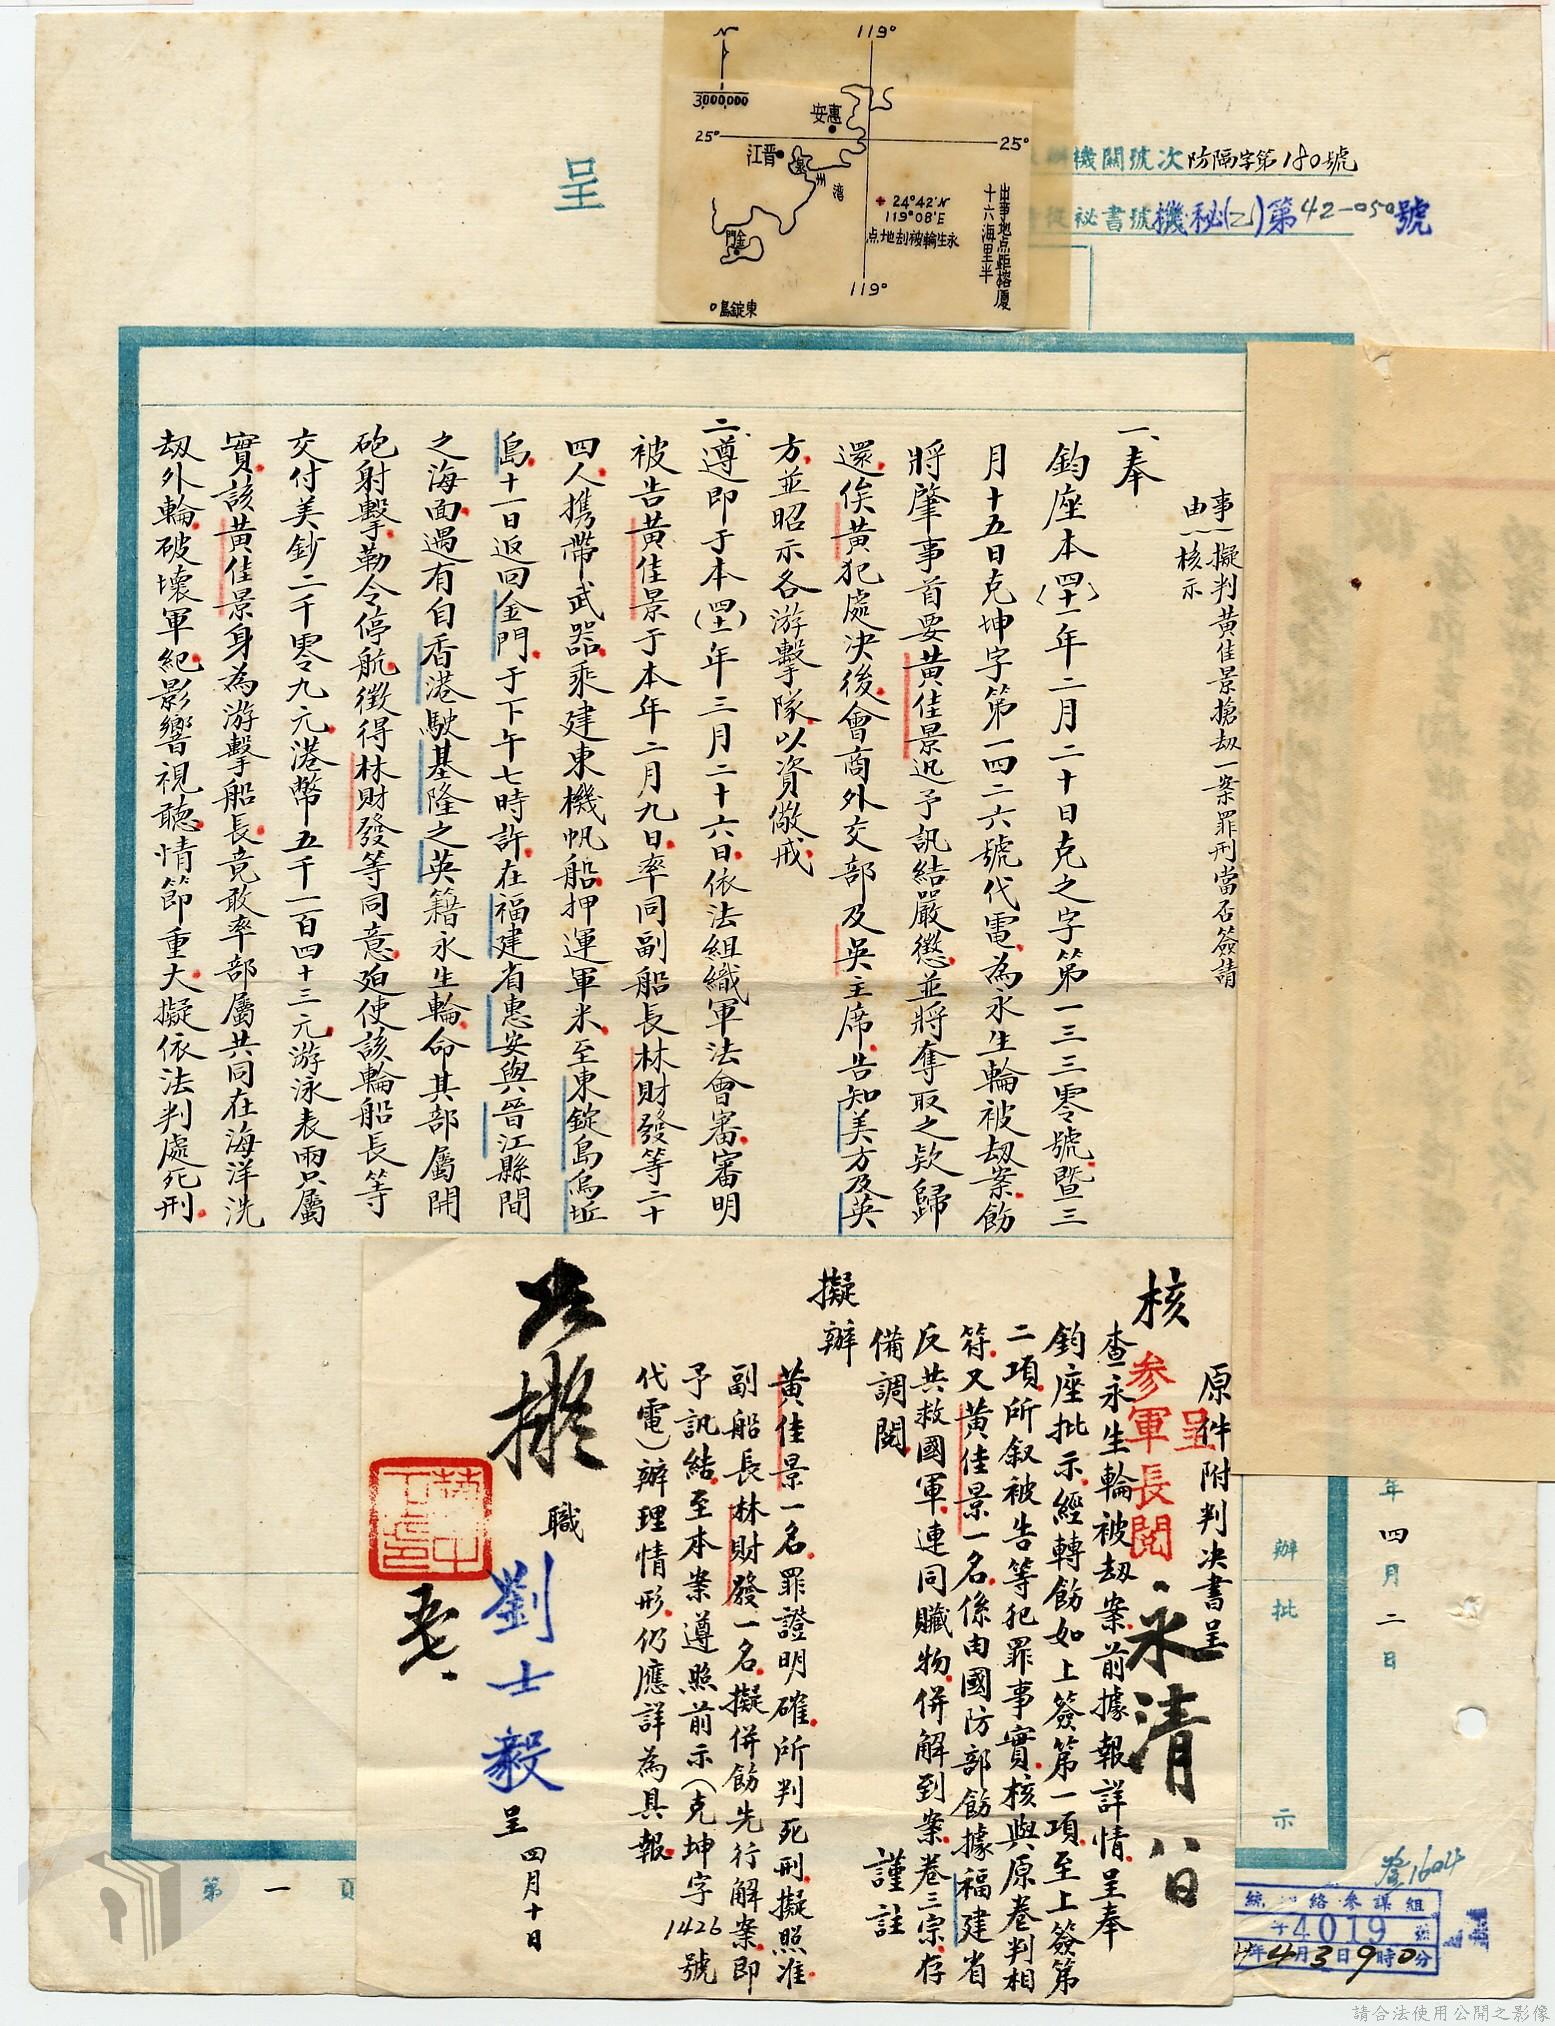 呈
N
3,000,000
119°
25°
25°
惠安
晉江
泉州灣
24°42'N
119°08'E
永生輪被刼地点
金門
119°
東錠島
出事地点距榕廈
十六海里半
機關號次防隔字第180號
從祕書號機秘(乙)第42-050號
事由
擬判黃佳景搶刼一案罪刑當否簽請
核示
一、奉
鈞座本(四十一)年二月二十日克之字第一三三零號暨三
月十五日克坤字第一四二六號代電為永生輪被刼案飭
將肇事首要黃佳景迅予訊結嚴懲並將奪取之款歸
還俟黃犯處決後會商外交部及吳主席告知美方及英
方並昭示各游擊隊以資儆戒
二、遵即于本(四十一)年三月二十六日依法組織軍法會審審明
被告黃佳景于本年二月九日率同副船長林財發等二十
四人携帶武器乘建東機帆船押運軍米至東錠島烏坵
島十一日返回金門于下午七時許在福建省惠安與晉江縣間
之海面遇有自香港駛基隆之英籍永生輪命其部屬開
砲射擊勒令停航徵得林財發等同意廹使該輪船長等
交付美鈔二千零九元港幣五千一百四十三元游泳表兩只屬
實該黃佳景身為游擊船長竟敢率部屬共同在海洋洗
刼外輪破壞軍紀影響視聽情節重大擬依法判處死刑
年四月二日
辦
批
示
原件附判決書呈
呈
參軍長閱
永清
八日
核
查永生輪被刼案前據報詳情呈奉
鈞座批示經轉飭如上簽第一項至上簽第
二項所叙被告等犯罪事實核與原卷判相
符又黃佳景一名係由國防部飭據福建省
反共救國軍連同贓物併解到案卷三宗存
備調閱
謹註
擬辦
黃佳景一名罪證明確所判死刑擬照准
副船長林財發一名擬併飭先行解案即
予訊結至本案遵照前示(克坤字1426號
代電)辦理情形仍應詳為具報
職
劉士毅
呈
四月十日
如擬
第一頁
參1604
絡參謀組
4019
年4月3日9時0分
請合法使用公開之影像